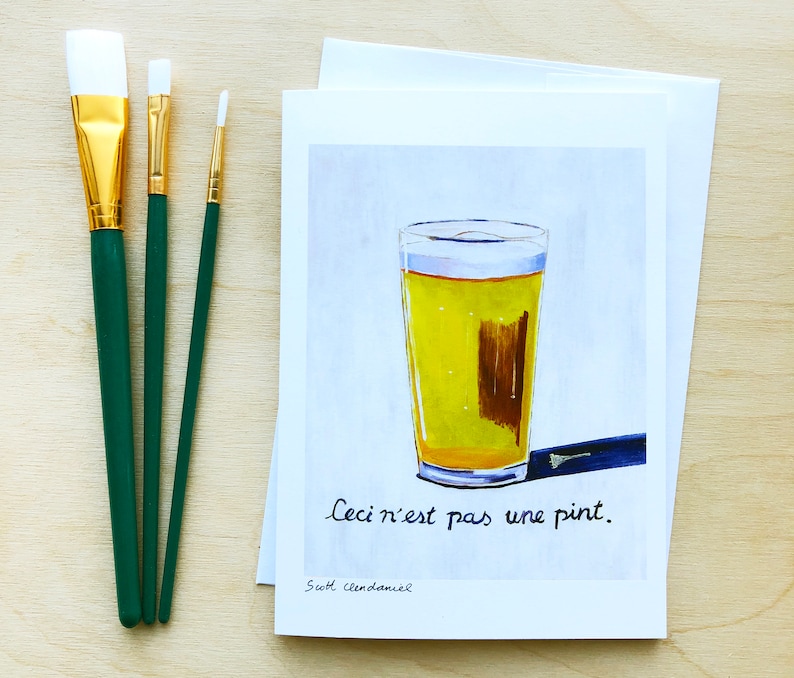 Ceci n'est pas une pint.
Scott Clendaniel